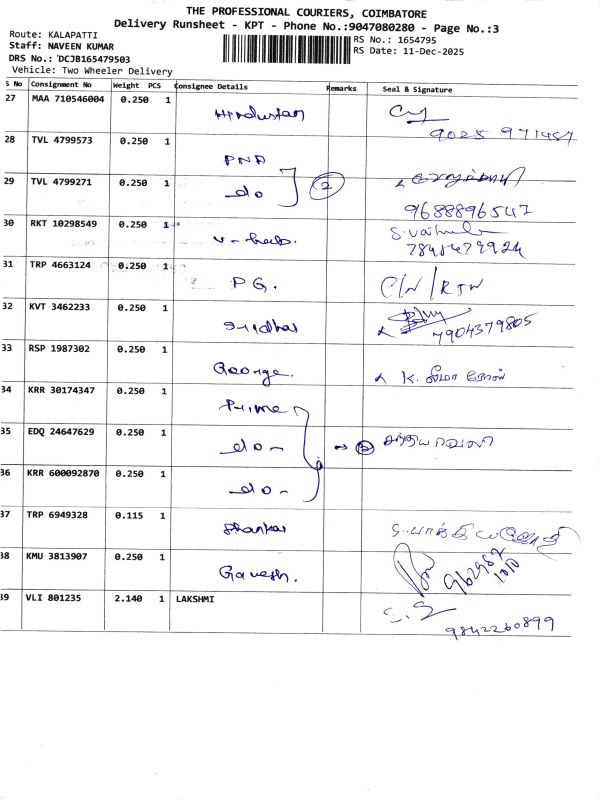 THE PROFESSIONAL COURIERS, COIMBATORE
Delivery Runsheet - KPT - Phone No.:9047080280 - Page No.:3
Route: KALAPATTI
Staff: NAVEEN KUMAR
DRS No.: DCJB165479503
Vehicle: Two Wheeler Delivery
RS No.: 1654795
RS Date: 11-Dec-2025
S No Consignment No Weight PCS Consignee Details Remarks Seal & Signature
27 MAA 710546004 0.250 1 Hindustan
9025 971457
28 TVL 4799573 0.250 1 PNP
29 TVL 4799271 0.250 1 do 2
9688896547
30 RKT 10298549 0.250 1
7845472924
31 TRP 4663124 0.250 1 PG. C/N/RTN
32 KVT 3462233 0.250 1 Sridhar
7904379805
33 RSP 1987302 0.250 1 George. K.
34 KRR 30174347 0.250 1 Prime
35 EDQ 24647629 0.250 1 do - 3
36 KRR 600092870 0.250 1 do -
37 TRP 6949328 0.115 1 Shankar
38 KMU 3813907 0.250 1 Ganesh.
962987
1010
39 VLI 801235 2.140 1 LAKSHMI
9842260899